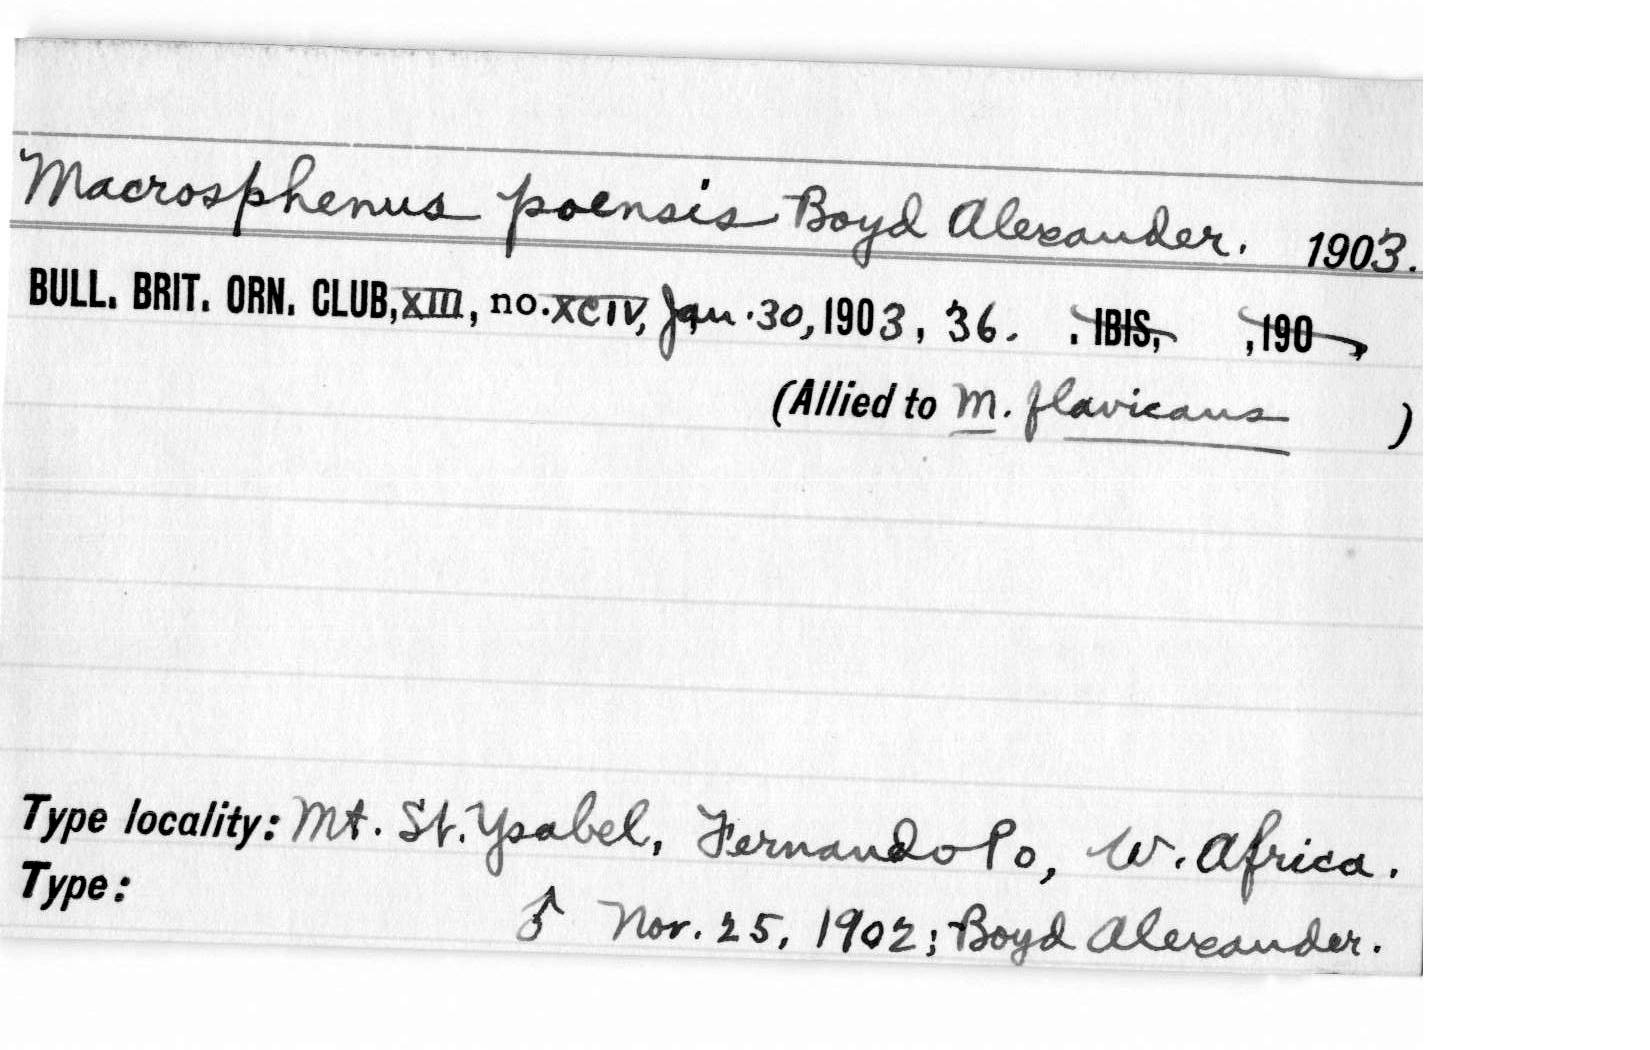 Macrosphenus poensis Boyd Alexander. 1903.
BULL. BRIT. ORN. CLUB, XIII, no. XCIV, Jan. 30, 1903, 36. . IBIS, , 190 ,
(Allied to M. flavicans )
Type locality: Mt. St. Ysabel, Fernando Po, W. Africa.
Type:
♂ Nov. 25, 1902; Boyd Alexander.